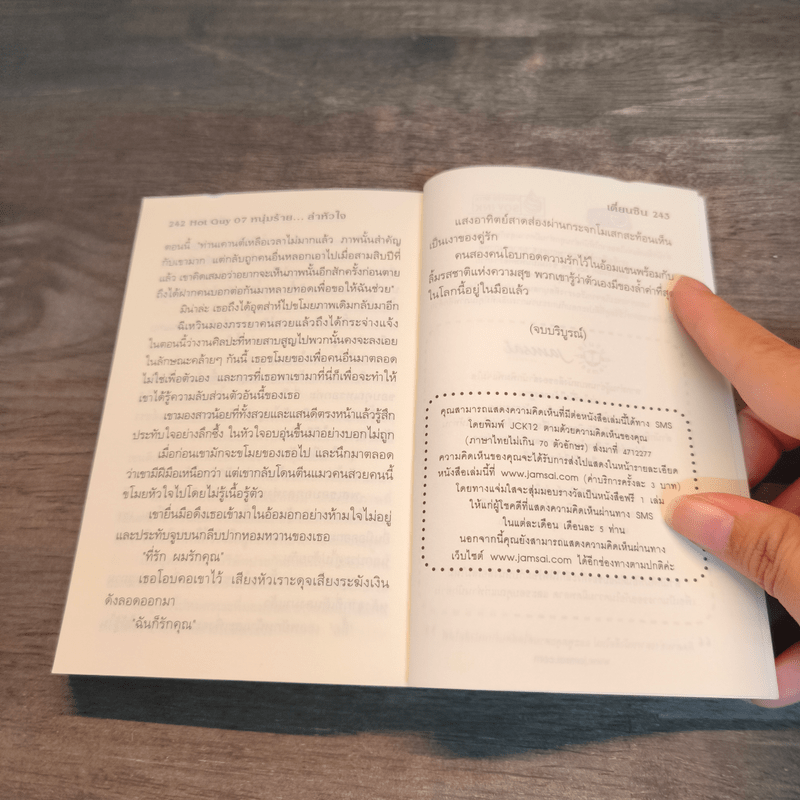 242 Hot Guy 07 หนุ่มร้าย... ล่าหัวใจ
ตอนนี้ "ท่านแคนต์เหลือเวลาไม่มากแล้ว ภาพนั้นสำคัญ
กับเขามาก แต่กลับถูกคนอื่นหลอกเอาไปเมื่อสามสิบปีที่
แล้ว เขาคิดเสมอว่าอยากจะเห็นภาพนั้นอีกสักครั้งก่อนตาย
ถึงได้ฝากคนบอกต่อกันมาหลายทอดเพื่อขอให้ฉันช่วย"
มิน่าล่ะ เธอถึงได้อุตส่าห์ไปขโมยภาพเดิมกลับมาอีก
ฉีเหวินมองภรรยาคนสวยแล้วถึงได้กระจ่างแจ้ง
ในตอนนี้ว่างานศิลปะที่หายสาบสูญไปพวกนั้นคงจะลงเอย
ในลักษณะคล้ายๆ กันนี้ เธอขโมยของเพื่อคนอื่นมาตลอด
ไม่ใช่เพื่อตัวเอง และการที่เธอพาเขามาที่นี่ก็เพื่อจะทำให้
เขาได้รู้ความลับส่วนตัวอันนี้ของเธอ
เขามองสาวน้อยที่ทั้งสวยและแสนดีตรงหน้าแล้วรู้สึก
ประทับใจอย่างลึกซึ้ง ในหัวใจอบอุ่นขึ้นมาอย่างบอกไม่ถูก
เมื่อก่อนเขามักจะขโมยของเธอไป และนึกมาตลอด
ว่าเขามีฝีมือเหนือกว่า แต่เขากลับโดนตีนแมวคนสวยคนนี้
ขโมยหัวใจไปโดยไม่รู้เนื้อรู้ตัว
เขายื่นมือดึงเธอเข้ามาในอ้อมอกอย่างห้ามใจไม่อยู่
และประทับจูบบนกลีบปากหอมหวานของเธอ
"ที่รัก ผมรักคุณ"
เธอโอบคอเขาไว้ เสียงหัวเราะดุจเสียงระฆังเงิน
ดังลอดออกมา
"ฉันก็รักคุณ"
เตี่ยนซิน 243
แสงอาทิตย์สาดส่องผ่านกระจกโมเสกสะท้อนเห็น
เป็นเงาของคู่รัก
คนสองคนโอบกอดความรักไว้ในอ้อมแขนพร้อมกับ
ลิ้มรสชาติแห่งความสุข พวกเขารู้ว่าตัวเองมีของล้ำค่าที่สุด
ในโลกนี้อยู่ในมือแล้ว
(จบบริบูรณ์)
คุณสามารถแสดงความคิดเห็นที่มีต่อหนังสือเล่มนี้ได้ทาง SMS
โดยพิมพ์ JCK12 ตามด้วยความคิดเห็นของคุณ
(ภาษาไทยไม่เกิน 70 ตัวอักษร) ส่งมาที่ 4712277
ความคิดเห็นของคุณจะได้รับการส่งไปแสดงในหน้ารายละเอียด
หนังสือเล่มนี้ที่ www.jamsai.com (ค่าบริการครั้งละ 3 บาท)
โดยทางแจ่มใสจะสุ่มมอบรางวัลเป็นหนังสือฟรี 1 เล่ม
ให้แก่ผู้โชคดีที่แสดงความคิดเห็นผ่านทาง SMS
ในแต่ละเดือน เดือนละ 5 ท่าน
นอกจากนี้คุณยังสามารถแสดงความคิดเห็นผ่านทาง
เว็บไซต์ www.jamsai.com ได้อีกช่องทางตามปกติค่ะ